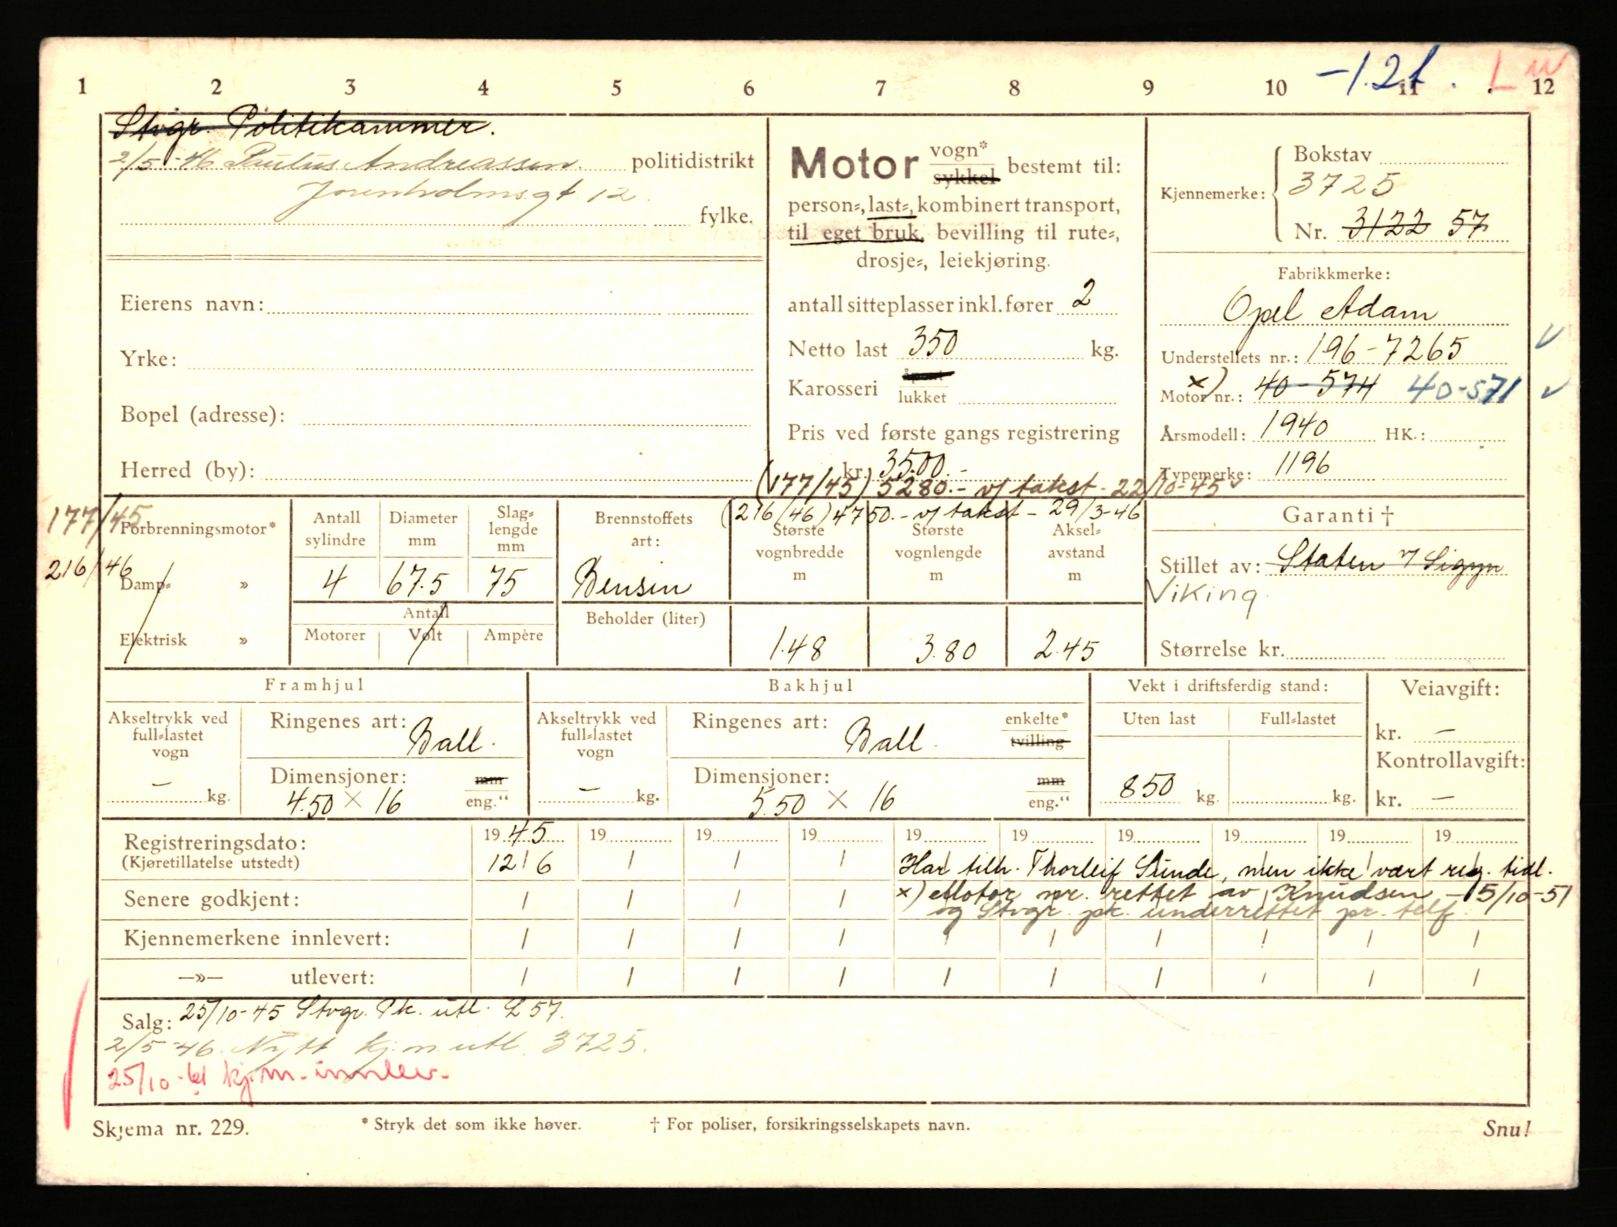 1 2 3 4 5 6 7 8 9 10 11 12
Stvgr. Politikammer.
2/5-46 Andreassen politidistrikt
12.
fylke.
Eierens navn:
Yrke:
Bopel (adresse):
Herred (by):
Motor vogn* sykkel bestemt til:
person-, last-, kombinert transport,
til eget bruk, bevilling til rute-,
drosje-, leiekjøring.
antall sitteplasser inkl. fører 2
Netto last 350 kg.
Karosseri åpent lukket
Pris ved første gangs registrering
kr. 3500.-
(177/45) 5280.- v/ takst - 22/10-45
(216/46) 4750.- v/ takst - 29/3-46
Bokstav
Kjennemerke: 3725
Nr. 3122 57
Fabrikkmerke:
Opel Adam
Understellets nr.: 196-7265
x) Motor nr.: 40-574 40-571
Årsmodell: 1940 HK.:
Typemerke: 1196
177/45
216/46
Forbrenningsmotor*
Damp- »
Elektrisk »
Antall sylindre
Diameter mm
Slag-lengde mm
4 67.5 75
Antall
Motorer Volt Ampère
Brennstoffets art:
Bensin
Beholder (liter)
Største vognbredde m
Største vognlengde m
Aksel-avstand m
1.48 3.80 2.45
Garanti †
Stillet av: Staten 7 Sigyn
Viking
Størrelse kr.
Framhjul
Akseltrykk ved full-lastet vogn
– kg.
Ringenes art: Ball.
Dimensjoner: mm
4.50 × 16 eng."
Bakhjul
Akseltrykk ved full-lastet vogn
– kg.
Ringenes art: Ball. enkelte* tvilling
Dimensjoner: mm
5.50 × 16 eng."
Vekt i driftsferdig stand:
Uten last Full-lastet
850 kg. kg.
Veiavgift:
kr. –
Kontrollavgift:
kr. –
Registreringsdato: 19 45 19 19 19 19 19 19 19 19 19
(Kjøretillatelse utstedt) 12/6 / / / Har tilh. Thorleif Sunde, men ikke vært reg. tidl.
Senere godkjent: / / / / x) Motor nr. rettet av Knudsen - 15/10-51
og Stvgr. pk. underrettet pr. telf.
Kjennemerkene innlevert: / / / / / / / / / /
—»— utlevert: / / / / / / / / / /
Salg: 25/10-45 Stvgr. Pk. utl. L 57.
2/5-46. Nytt kj.m. utl. 3725.
25/10-61 kj.m. innlev.
Skjema nr. 229.
* Stryk det som ikke høver.
† For poliser, forsikringsselskapets navn.
Snu!